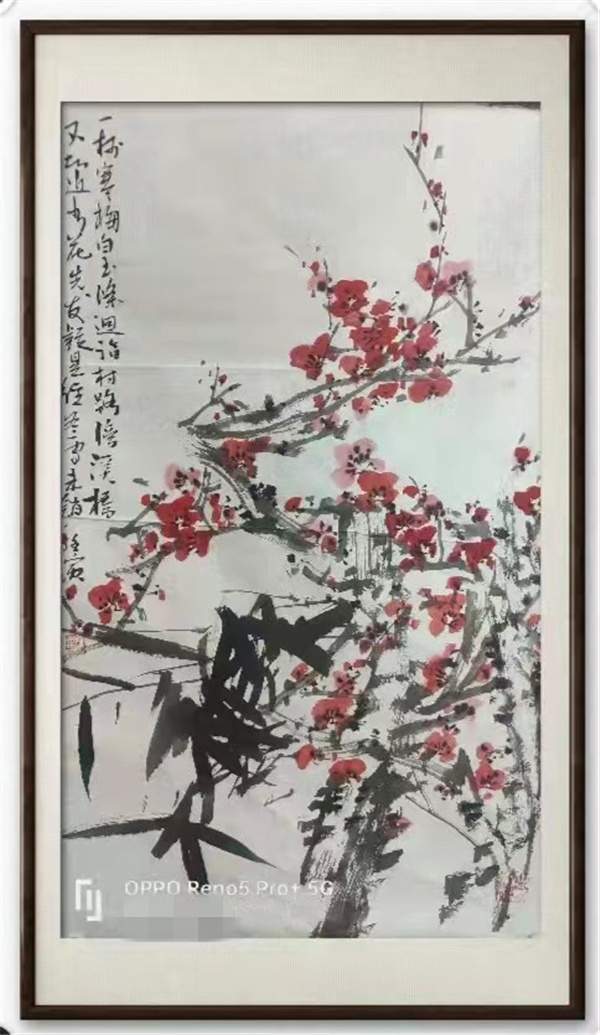 一树寒梅白玉條迴临村路傍溪橋
不知近水花先发疑是经冬雪未销 壬寅
OPPO Reno5 Pro+ 5G